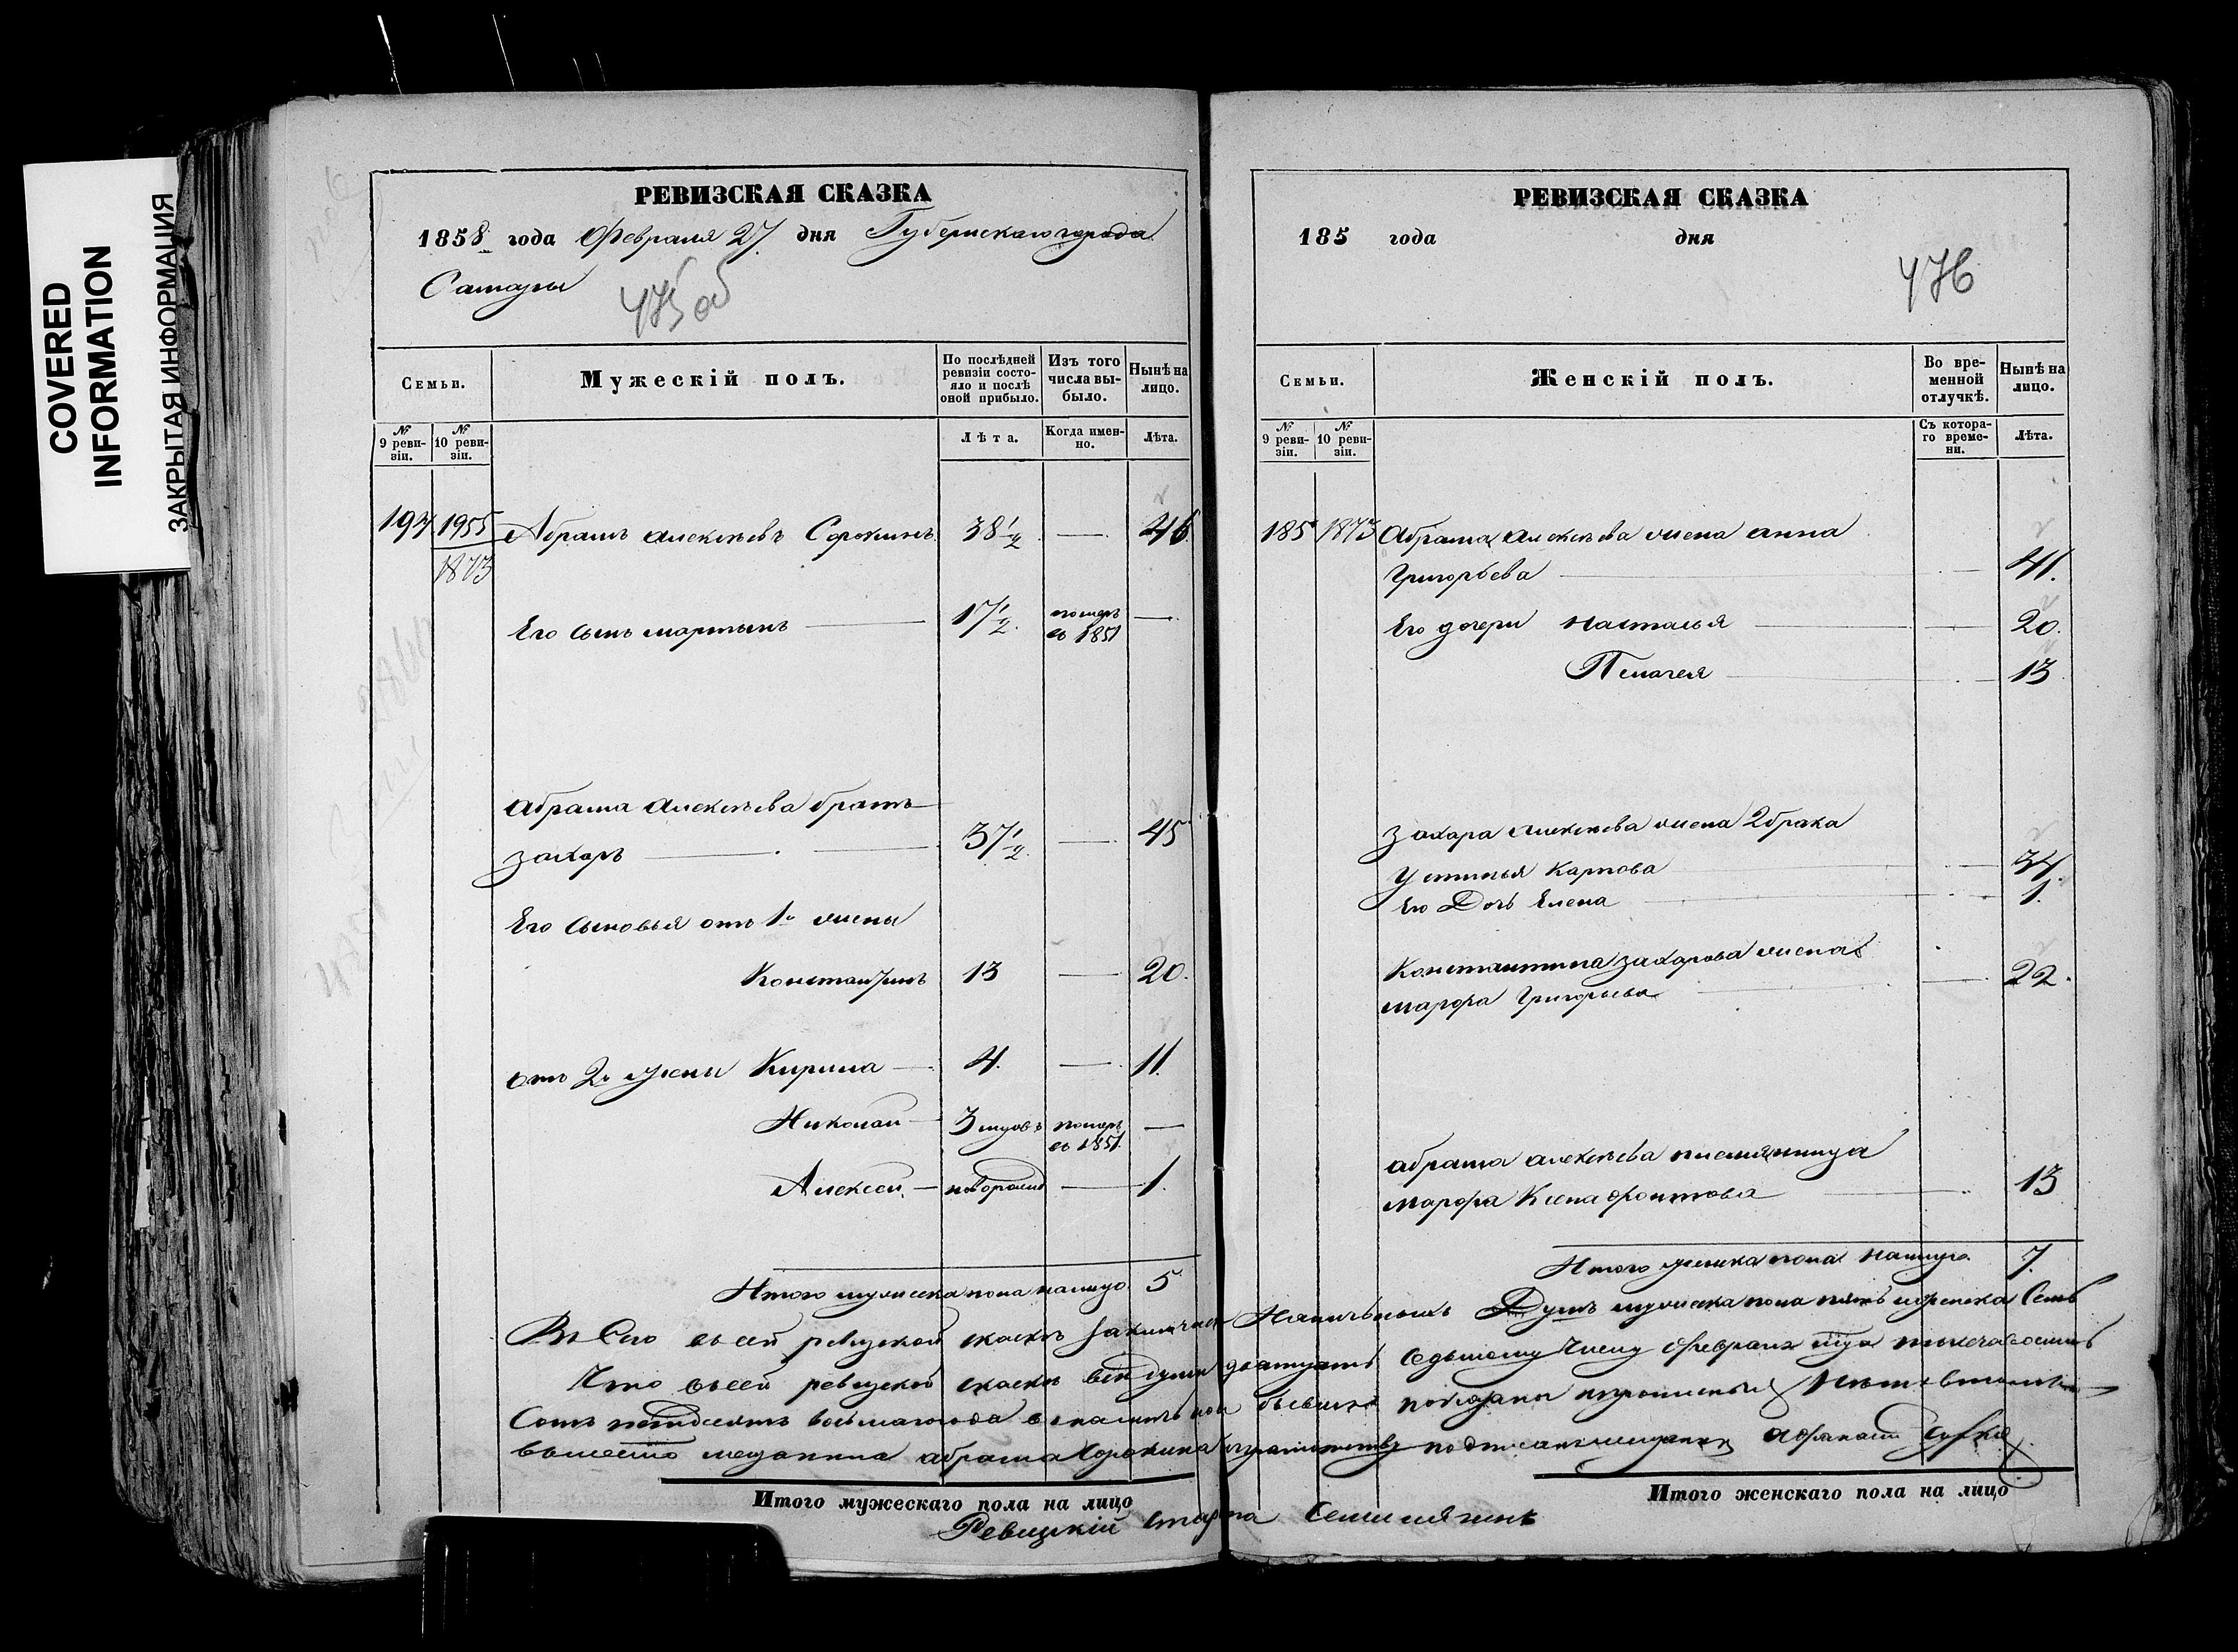 COVERED
INFORMATION
ЗАКРЫТАЯ ИНФОРМАЦИЯ
РЕВИЗСКАЯ СКАЗКА
1858 года Февраля 27 дня Губернскаго города
Самары
475 об
Семьи.
Мужескій полъ.
По послѣдней ревизіи состояло и послѣ оной прибыло.
Изъ того числа выбыло.
Нынѣ на лицо.
№ 9 ревизіи.
№ 10 ревизіи.
Лѣта.
Когда именно.
Лѣта.
197 1955 Абрамъ Алексѣевъ Сорокинъ 38 1/2 — 46
1873
Его сынъ мартынъ — 17 1/2 померъ въ 1851 —
абрама Алексѣева братъ
захаръ — 37 1/2 — 45
Его сыновья отъ 1й жены
Константинъ 13 — 20.
отъ 2й жены Кирила — 4. — 11.
Николай — 3 померъ въ 1851 —
Алексей — новорожд — 1.
Итого мужеска пола налицо 5
РЕВИЗСКАЯ СКАЗКА
185 года дня
476
Семьи.
Женскій полъ.
Во временной отлучкѣ.
Нынѣ на лицо.
№ 9 ревизіи.
№ 10 ревизіи.
Съ котораго времени.
Лѣта.
185 1873 Абрама Алексѣева жена анна
Григорьева — 41.
Его дочери Наталья — 20.
Пелагея — 13
захара Алексѣева жена 2 брака
Устинья Карпова — 34.
Его Дочь Елена — 1.
Константина захарова жена
марфа Григорьева — 22.
абрама алексѣева племянница
марфа Ксенофонтова — 13
Итого женска пола налицо 7.
въ сей ревизской скаскѣ наличныхъ Душъ мужеска пола пять женска Семь
Что въ сей ревизской скаскѣ всѣ души двадцать седьмому числу февраля тысяча восемь
Сотъ пятдесятъ восьмаго года показаны
вместо мещанина абрама Сорокина
Итого мужескаго пола на лицо
Итого женскаго пола на лицо
Ревизскій